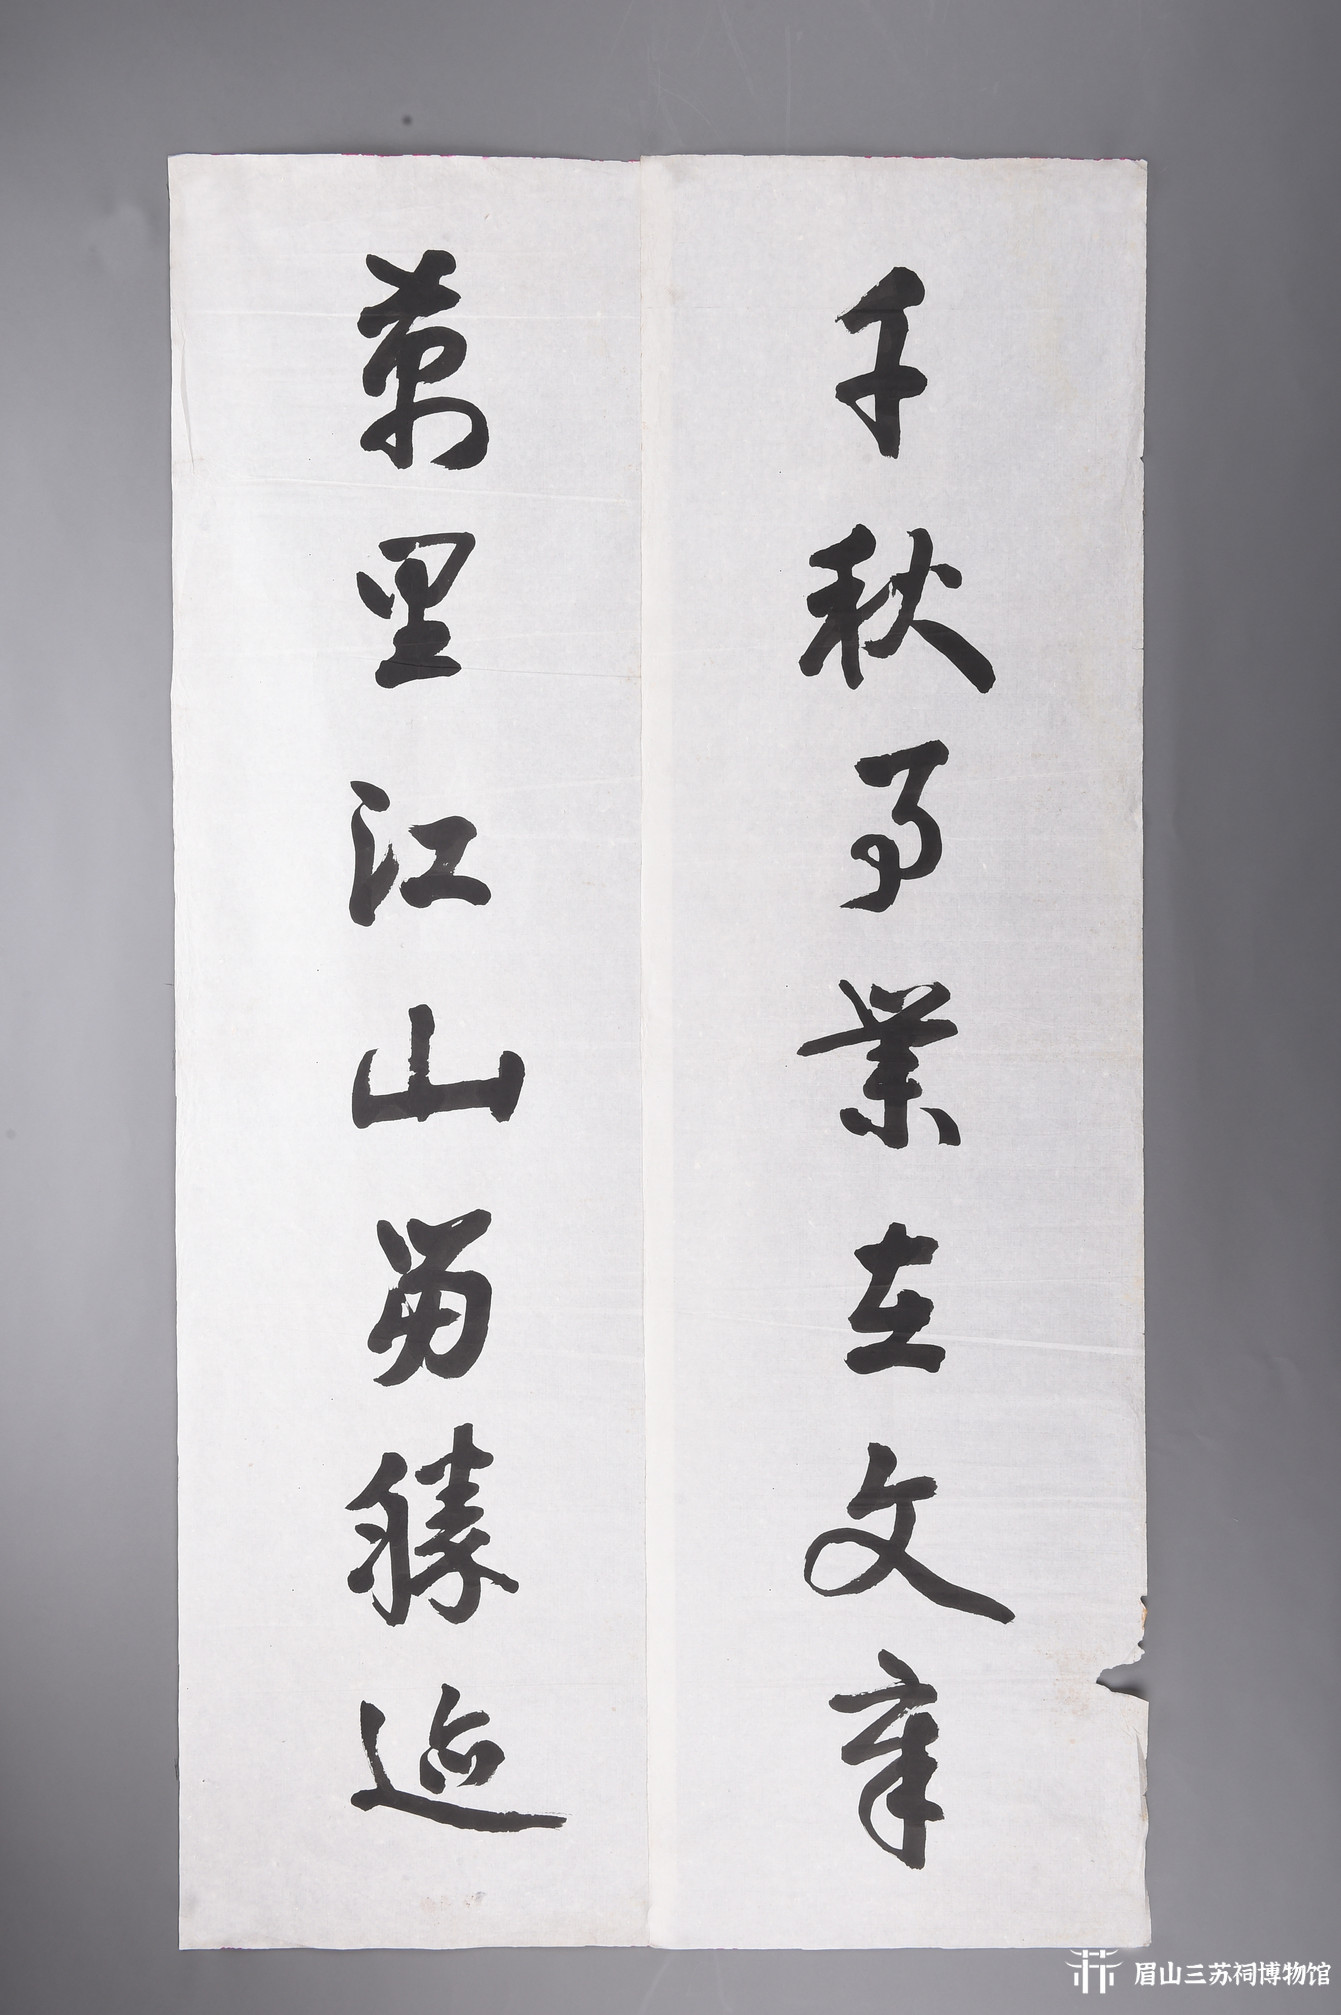 千秋事業在文章
萬里江山留勝迹
眉山三苏祠博物馆